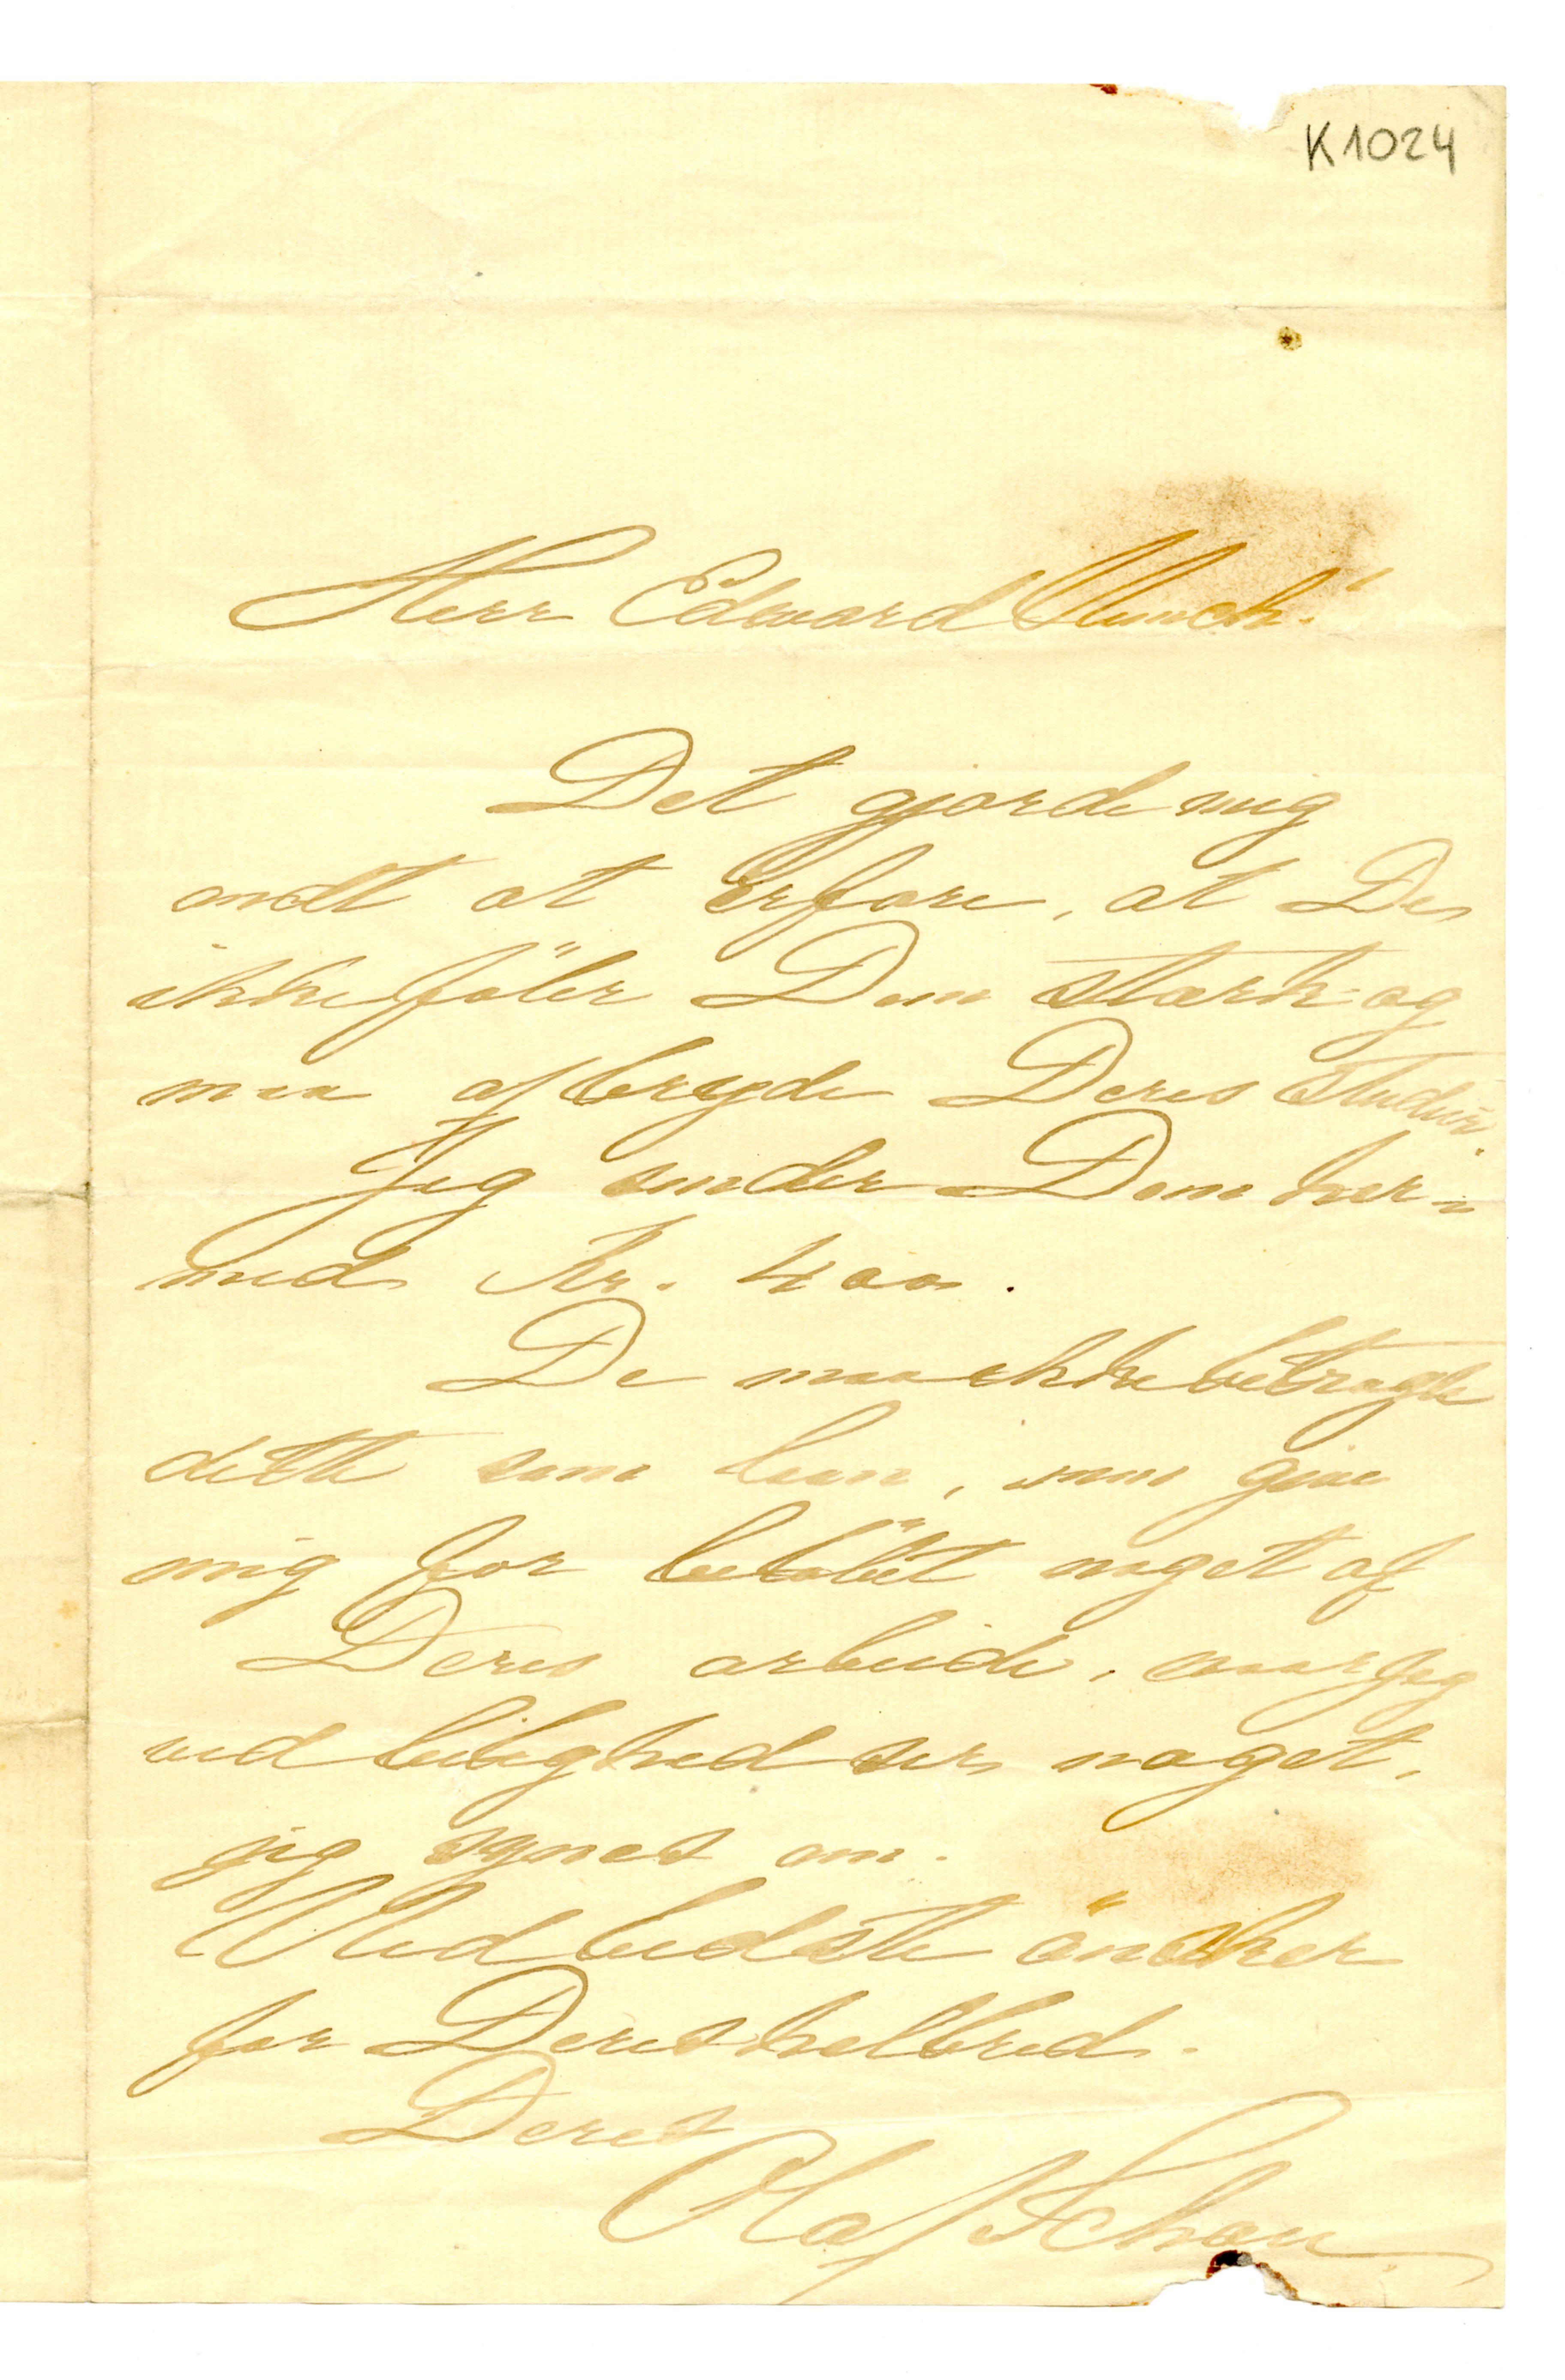 K1024
Herr Edvard Munch!
Det gjorde mig
ondt at erfare, at De
ikke föler Dem stærk og
maa afbryde Deres studier.
Jeg sender Dem her-
med Kr. 400.
De maa ikke betragte
dette som laan, men give
mig for belöbet noget af
Deres arbeide, naar jeg
ved leilighed ser noget,
jeg synes om.
Med bedste önsker
for Deres helbred.
Deres
Olaf Schou